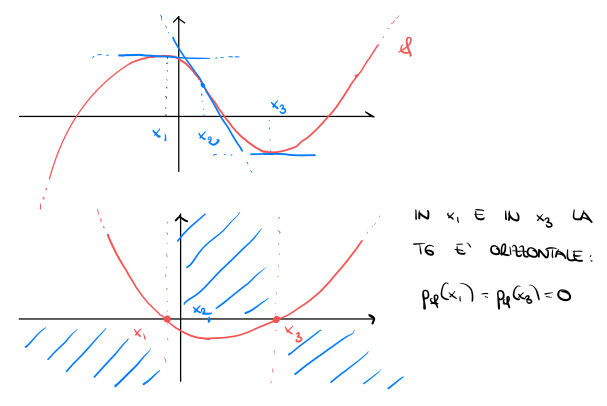 f
x₃
x₁
x₂
x₂
x₁
x₃
IN x₁ E IN x₃ LA
TG E' ORIZZONTALE:
pf(x₁) = pf(x₃) = 0